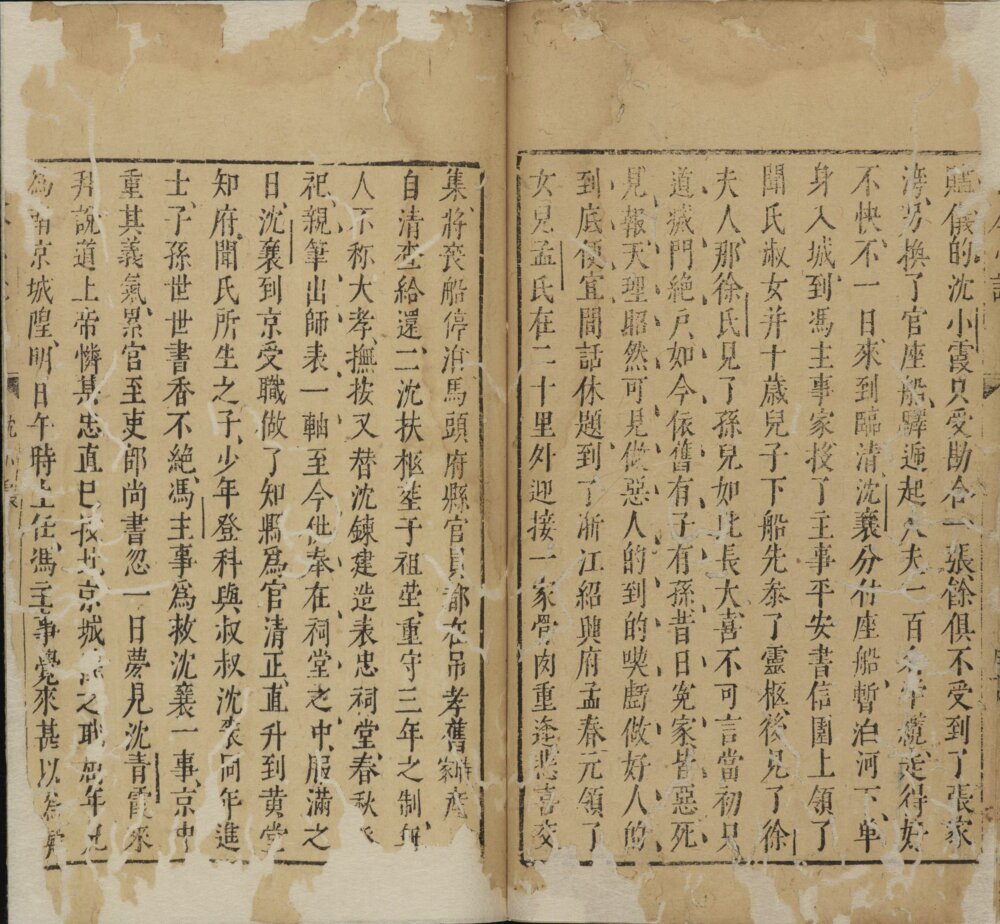 贐儀的沈小霞只受勘合一張餘俱不受到了張家
灣另換了官座船驛遞起人夫一百名牽纜走得好
不快不一日來到臨清沈襄分付座船暫泊河下單
身入城到馮主事家投了主事平安書信園上領了
聞氏淑女并十歲兒子下船先叅了靈柩後見了徐
夫人那徐氏見了孫兒如此長大喜不可言當初只
道滅門絕戶如今依舊有子有孫昔日冤家皆惡死
見報天理昭然可見做惡人的到的喫虧做好人的
到底便宜閒話休題到了浙江紹興府孟春元領了
女兒孟氏在二十里外迎接一家骨肉重逢悲喜交
集將喪船停泊馬頭府縣官員都在吊孝舊時家產
自清查給還二沈扶柩塟于祖塋重守三年之制無
人不称大孝撫按又替沈鍊建造表忠祠堂春秋
祀親筆出師表一軸至今供奉在祠堂之中服滿之
日沈襄到京受職做了知縣爲官清正直升到黃堂
知府聞氏所生之子少年登科與叔叔沈袠同年進
士子孫世世書香不絶馮主事爲救沈襄一事京中
重其義氣累官至吏部尚書忽一日夢見沈青霞來
拜說道上帝憐某忠直已授北京城之職屈年兄
爲南京城隍明日午時上任馮主事覺來甚以爲疑